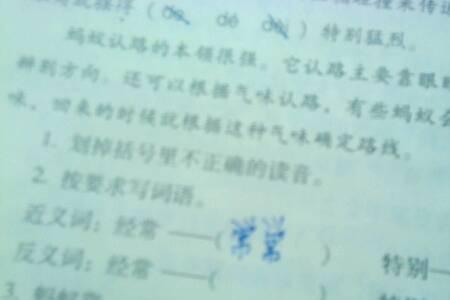 得（de dé děi）特别猛烈。
蚂蚁认路的本领很强。它认路主要靠眼
辨别方向，还可以根据气味认路，有些蚂蚁
味，回来的时候就根据这种气味确定路线。
1. 划掉括号里不正确的读音。
2. 按要求写词语。
近义词：经常——（常常） 特别—
反义词：经常——（ ）
3. 蚂蚁